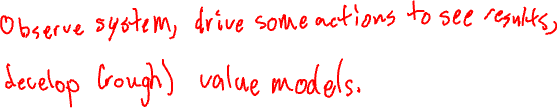 Observe system, drive some actions to see results,
develop (rough) value models.